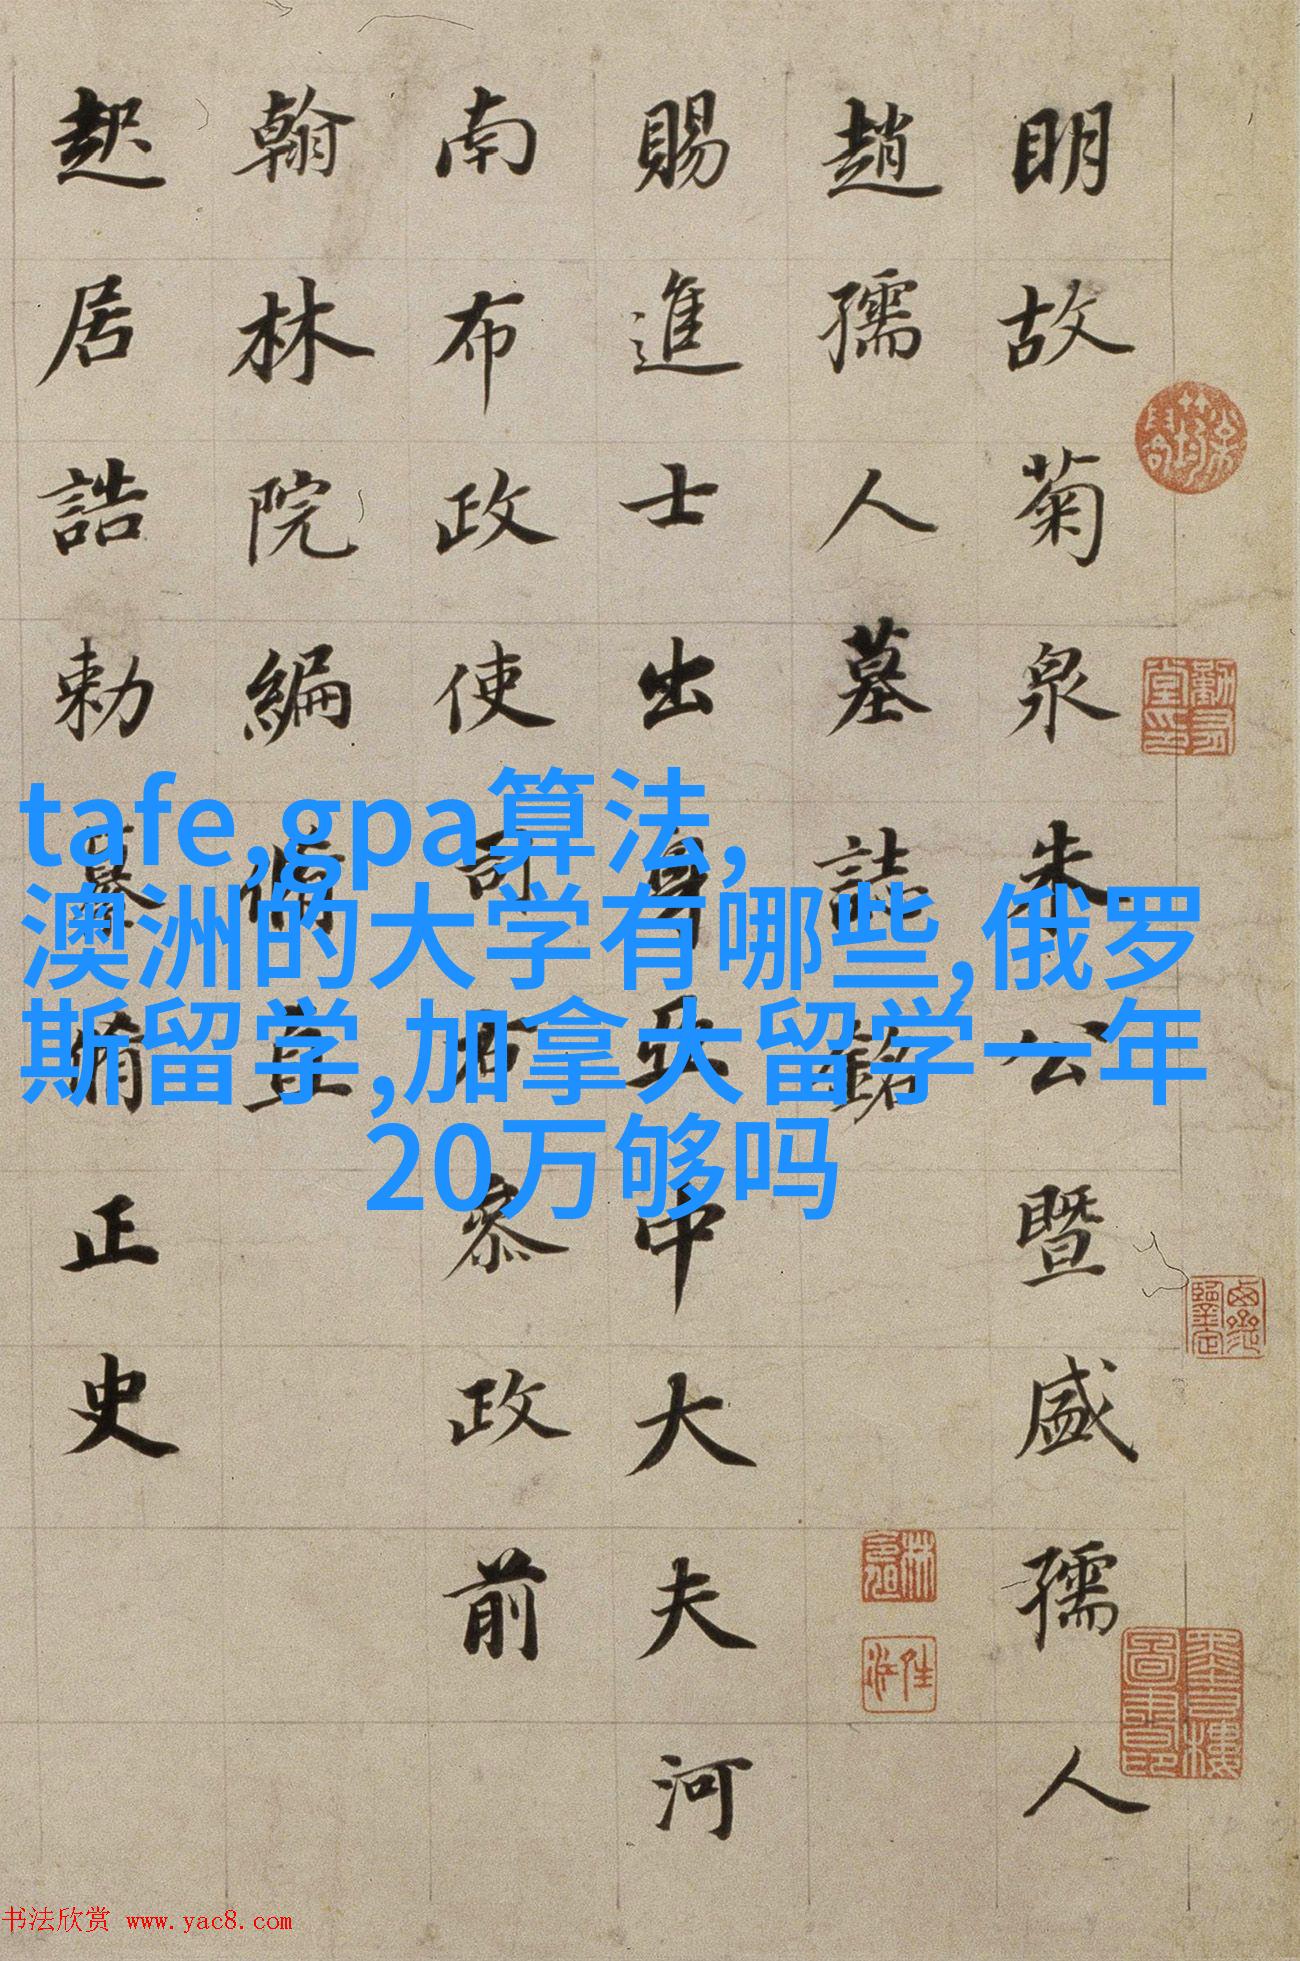 明故菊泉朱公暨盛孺人
趙孺人墓誌銘
賜進士出身亞中大夫河
南布政使司右叅政前
翰林院編脩直
起居誥勅纂脩正史
tafe,gpa算法,
澳洲的大学有哪些,俄罗
斯留学,加拿大留学一年
20万够吗
书法欣赏 www.yac8.com